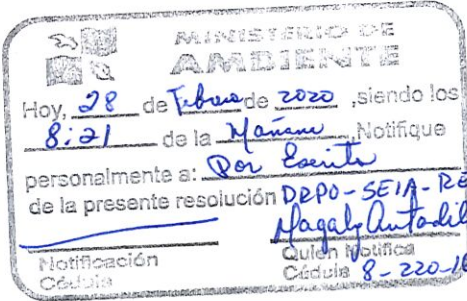 MINISTERIO DE
AMBIENTE
Hoy, 28 de Febrero de 2020, siendo los
8:21 de la Mañana, Notifique
personalmente a: Por Escrito
de la presente resolución DRPO-SEIA-RE
Magaly
Notificación Quien Notifica
Cédula Cédula 8-220-16